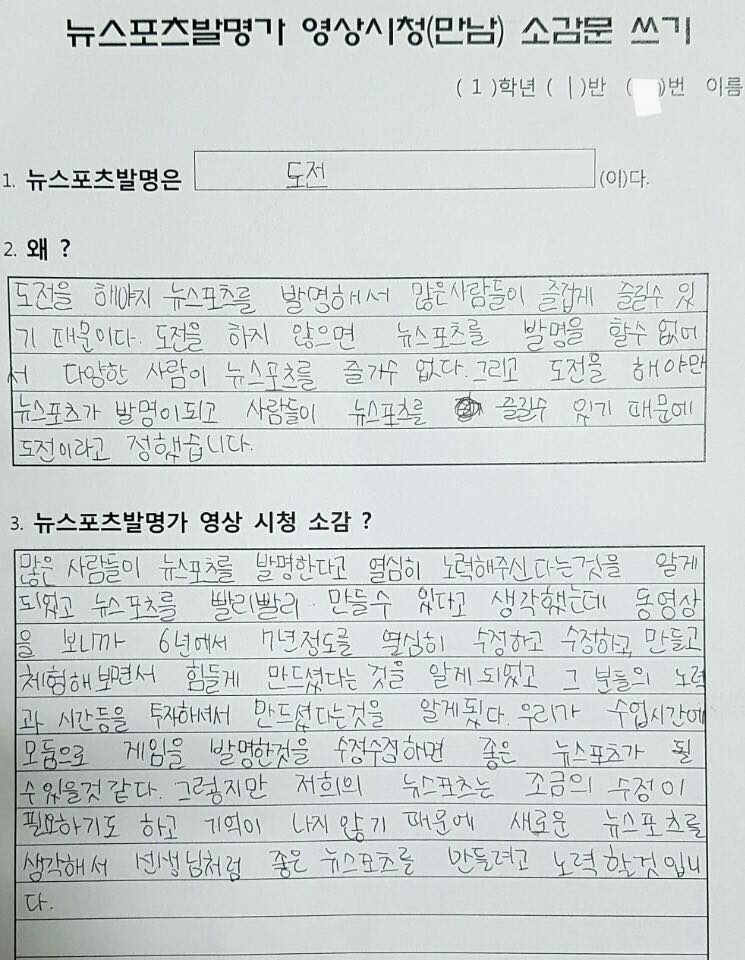 뉴스포츠발명가 영상시청(만남) 소감문 쓰기
( 1 )학년 ( 1 )반 ( )번 이름
1. 뉴스포츠발명은 도전 (이)다.
2. 왜 ?
도전을 해야지 뉴스포츠를 발명해서 많은사람들이 즐겁게 즐길수 있
기 때문이다. 도전을 하지 않으면 뉴스포츠를 발명을 할수 없어
서 다양한 사람이 뉴스포츠를 즐기수 없다. 그리고 도전을 해야만
뉴스포츠가 발명이되고 사람들이 뉴스포츠를 즐길수 있기 때문에
도전이라고 정했습니다.
3. 뉴스포츠발명가 영상 시청 소감 ?
많은 사람들이 뉴스포츠를 발명한다고 열심히 노력해주신다는것을 알게
되었고 뉴스포츠를 빨리빨리 만들수 있다고 생각했는데 동영상
을 보니까 6년에서 7년정도를 열심히 수정하고 수정하고 만들고
체험해보면서 힘들게 만드셨다는 것을 알게되었고 그 분들의 노력
과 시간등을 투자하셔서 만드셨다는것을 알게됬다. 우리가 수업시간에
모둠으로 게임을 발명한것을 수정수정하면 좋은 뉴스포츠가 될
수있을것 같다. 그렇지만 저희의 뉴스포츠는 조금의 수정이
필요하기도 하고 기억이 나지않기 때문에 새로운 뉴스포츠를
생각해서 선생님처럼 좋은 뉴스포츠를 만들려고 노력할것입니
다.